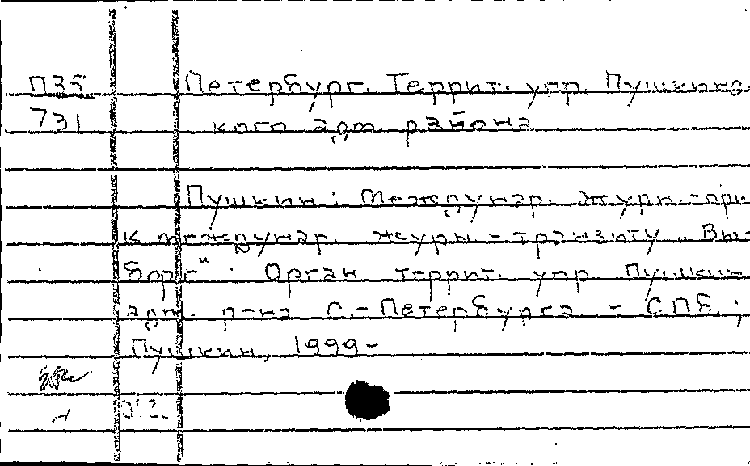 П35 Петербург. Террит. упр. Пушкинс-
731 кого адм. района
Пушкин : Междунар. журн.-прил.
к междунар. журн.-транзиту „Вы-
борг“ : Орган террит. упр. Пушкин.
адм. р-на С.-Петербурга. - СПб. ;
Пушкин, 1999-